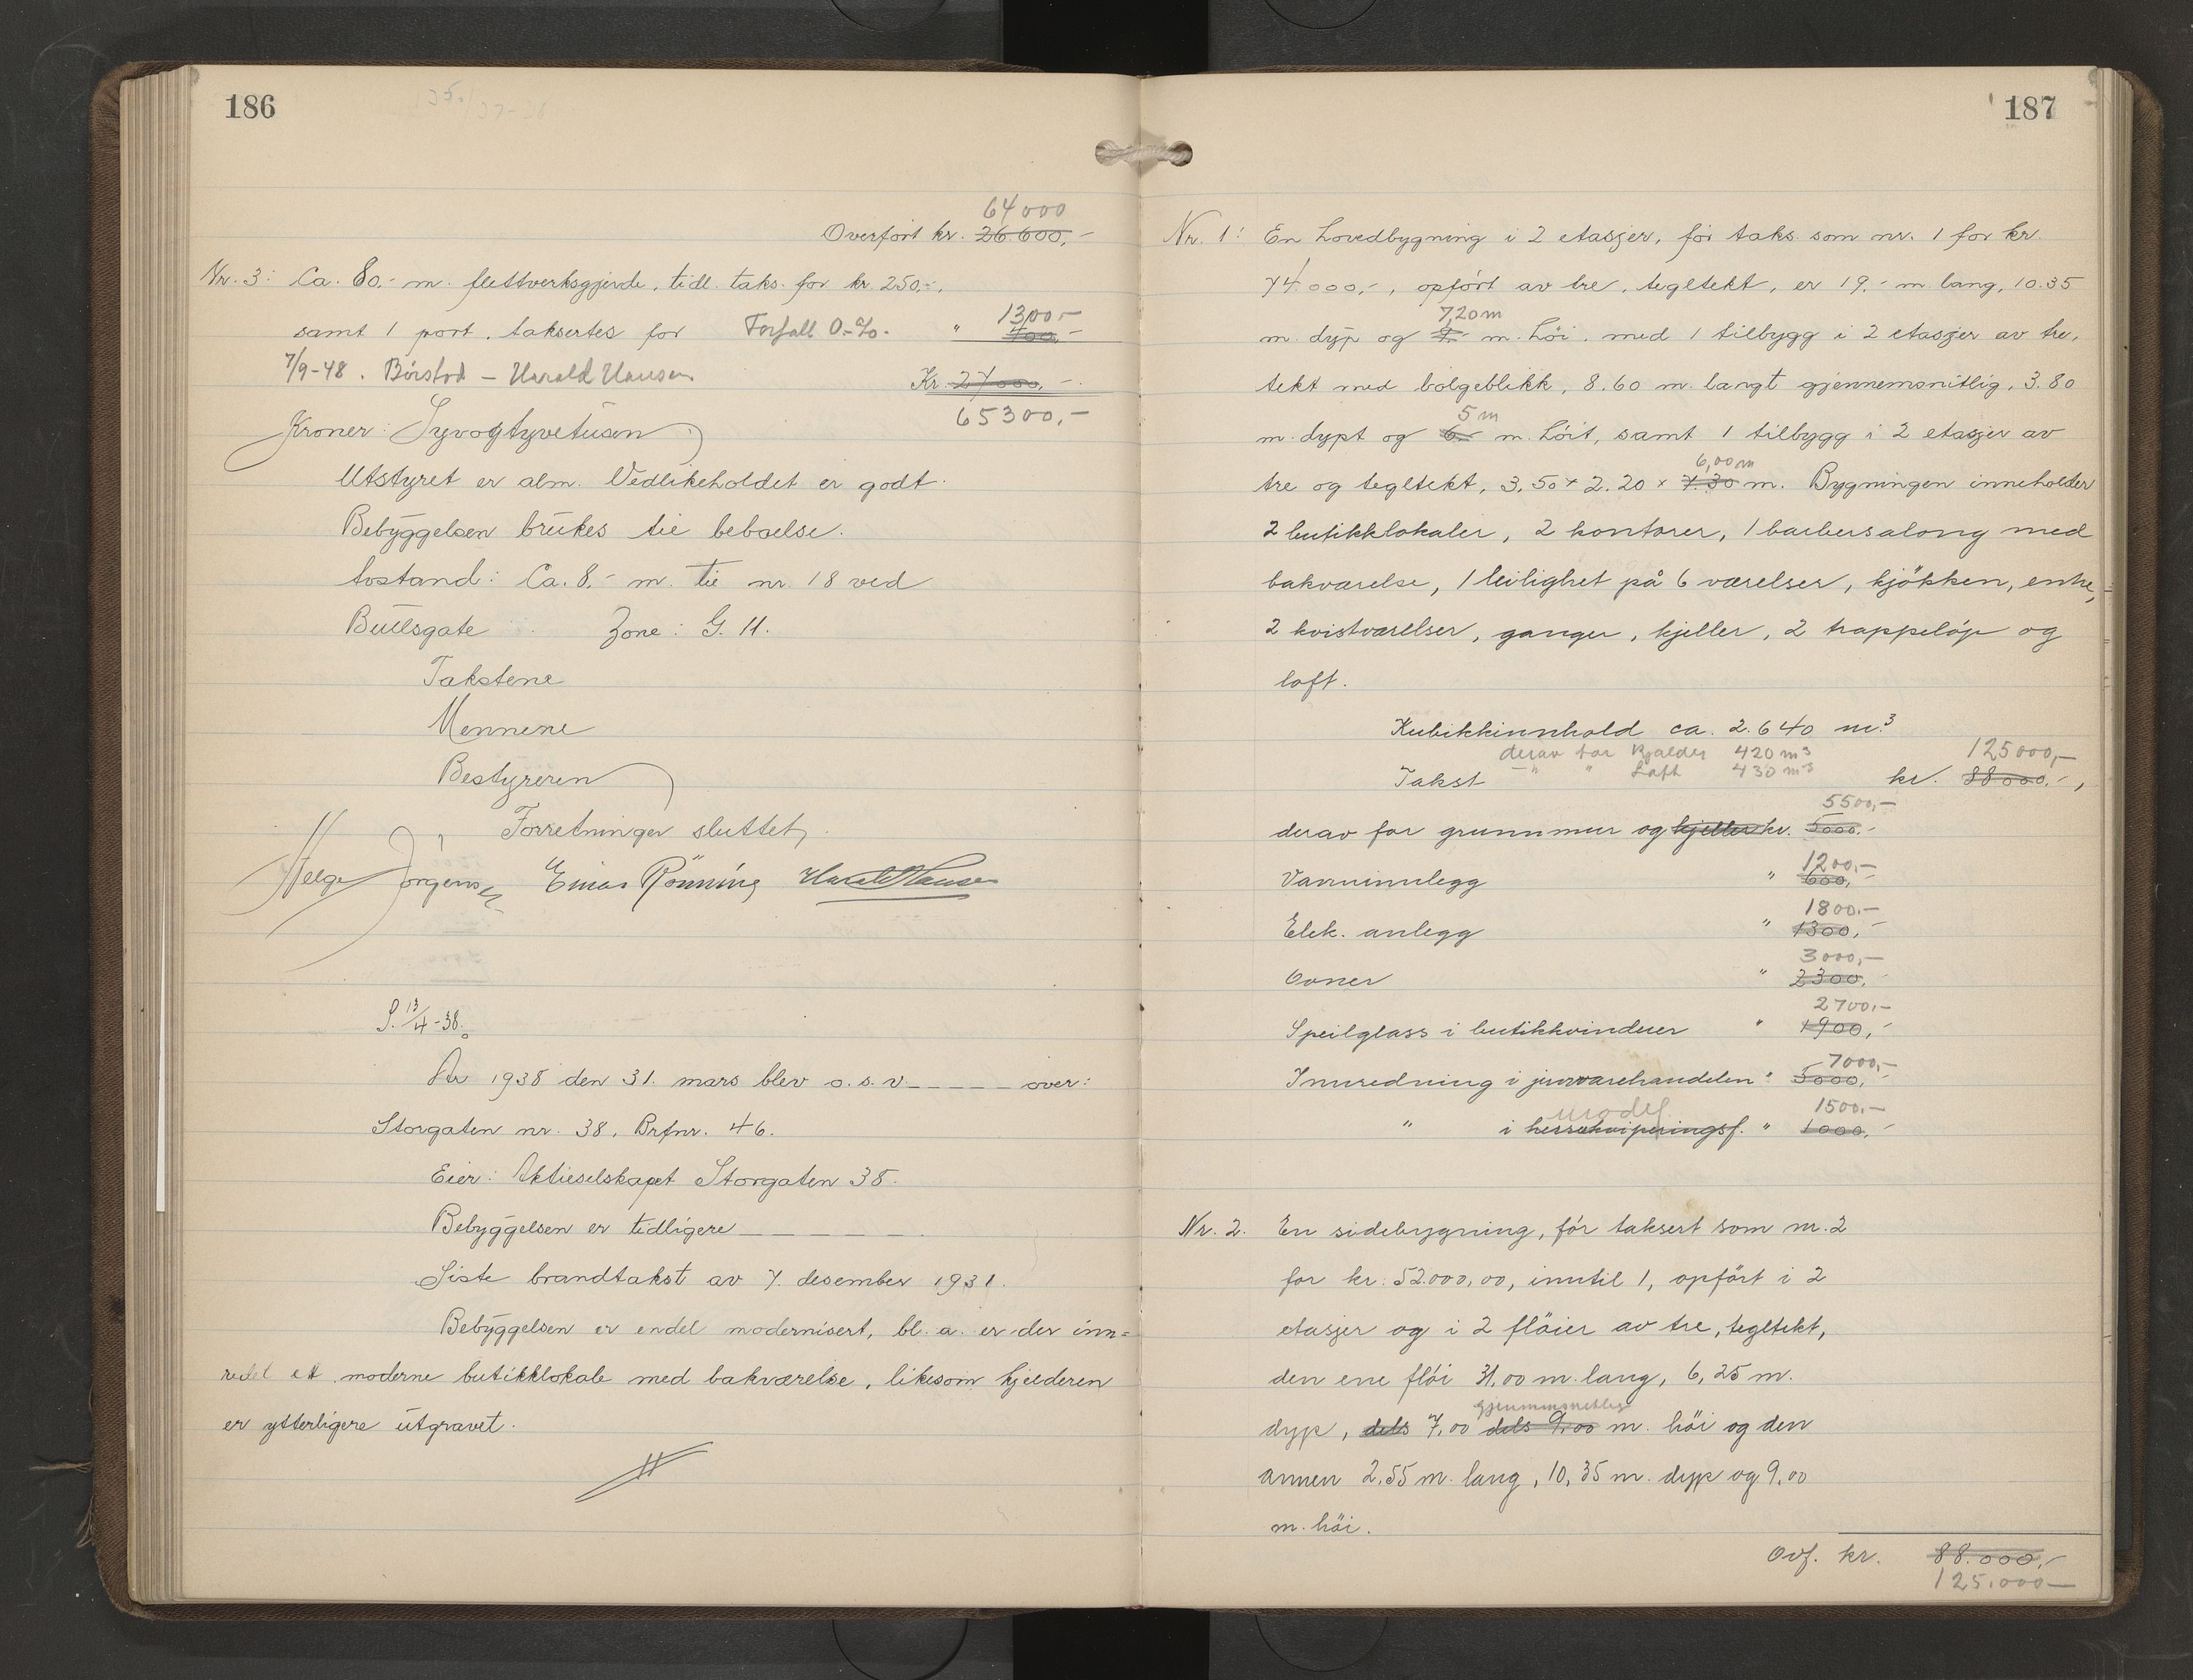 186
64000
Overført kr. 26.600,-
Nr. 3: Ca. 80,- m. flettverksgjerde, tidl. taks. for kr. 250,-,
samt 1 port, taksertes for Forfall 0-%. " 1300,- 400,-
7/9-48. Børstad - Harald Hansen Kr. 27000,-
65300,-
Kroner: Syvogtyvetusen
Utstyret er alm. Vedlikeholdet er godt.
Bebyggelsen brukes til beboelse.
Avstand: Ca. 8,- m. til nr. 18 ved
Bullsgate Zone: G. 11.
Takstene
Mennene
Bestyreren
Forretningen sluttet,
Helge Jörgensen Einar Rönning Harald Hansen
S. 13/4-38.
År 1938 den 31. mars blev o.s.v. _ _ _ _ over:
Storgaten nr. 38, Brfnr. 46.
Eier: Aktieselskapet Storgaten 38.
Bebyggelsen er tidligere _ _ _ _ _
Siste brandtakst av 7. desember 1931.
Bebyggelsen er endel modernisert, bl. a. er der inn=
redet ett moderne butikklokale med bakværelse, likesom kjelderen
er ytterligere utgravet.
187
Nr. 1: En hovedbygning i 2 etasjer, før taks. som nr. 1 for kr.
74.000,-, opført av tre, tegltekt, er 19,- m. lang, 10.35
7,20 m
m. dyp og 9,- m. høi, med 1 tilbygg i 2 etasjer av tre,
tekt med bølgeblikk, 8.60 m. langt gjennemsnitlig, 3.80
5 m
m. dypt og 6,- m. høit, samt 1 tilbygg i 2 etasjer av
6,00 m
tre og tegltekt, 3.50 x 2.20 x 7.30 m. Bygningen inneholder
2 butikklokaler, 2 kontorer, 1 barbersalong med
bakværelse, 1 leilighet på 6 værelser, kjökken, entre,
2 kvistværelser, ganger, kjeller, 2 trappelöp og
loft.
Kubikkinnhold ca. 2.640 m³
derav for Kjelder 420 m³ 125000,-
-"- " Loft 430 m³
Takst kr. 88000,-,
5500,-
derav for grunnmur og kjeller kr. 5000,-
1200,-
Vanninnlegg " 600,-
1800,-
Elek. anlegg " 1300,-
3000,-
Ovner " 2300,-
2700,-
Speilglass i butikkvinduer " 1900,-
7000,-
Innredning i jernvarehandelen " 5000,-
1500,-
" i herrekviperingsf. " 1000,-
Nr. 2. En sidebygning, för taksert som nr. 2
for kr. 52.000,00, inntil 1, opfört i 2
etasjer og i 2 flöier av tre, tegltekt,
den ene flöi 31,00 m. lang, 6,25 m.
gjennemsnitlig
dyp, dels 7,00 dels 9,00 m. höi og den
annen 2,55 m. lang, 10,35 m. dyp og 9,00
m. höi.
Ovf. kr. 88.000,-
125.000-